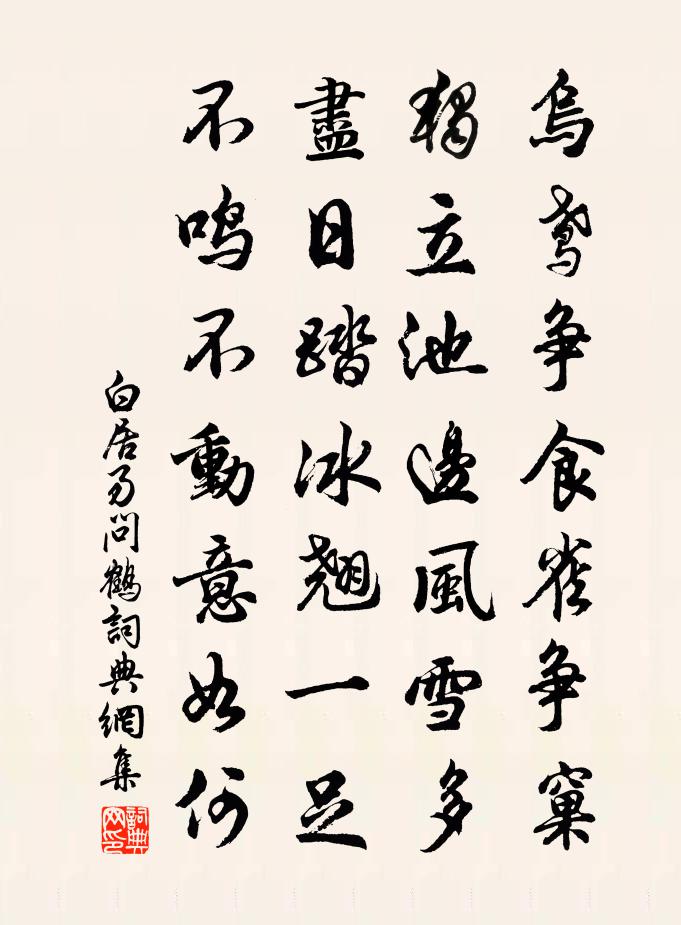 烏鳶争食雀争窠
獨立池邊風雪多
盡日踏冰翹一足
不鳴不動意如何
白居易問鶴詞典網集
詞典網印